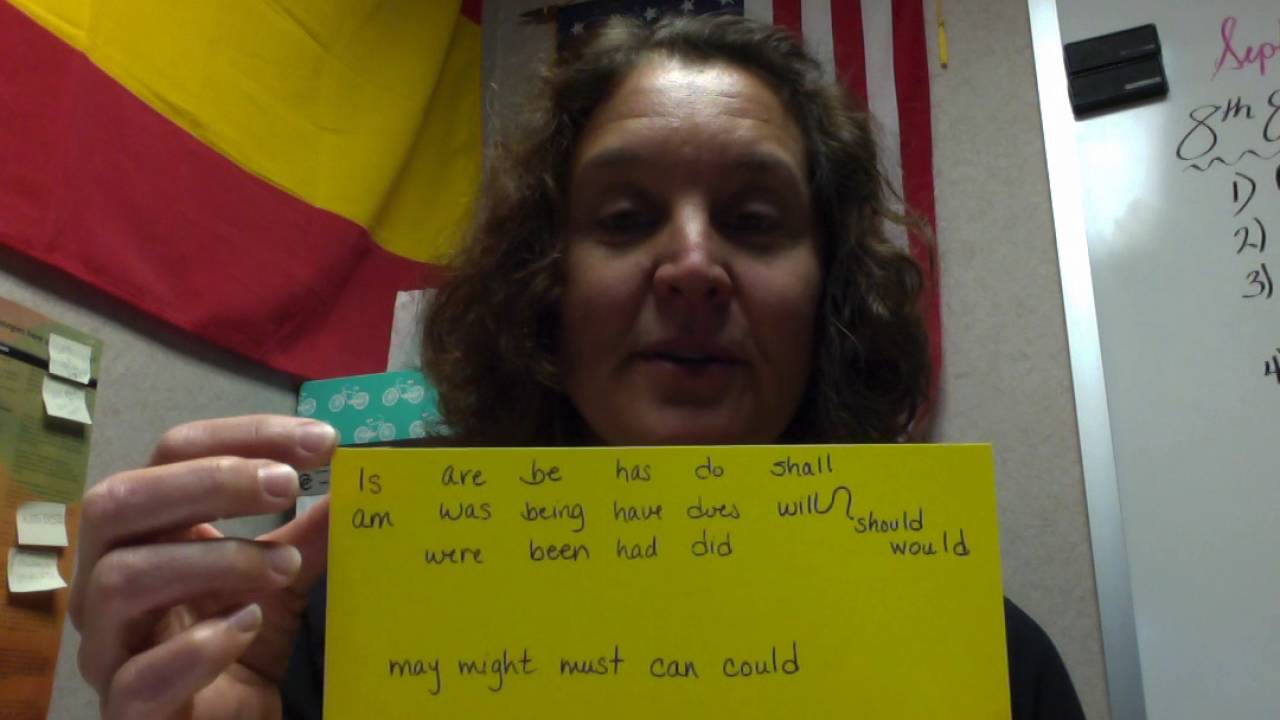 Is are be has do shall
am was being have does will
should
were been had did would
may might must can could
Sep
8th
1)
2)
3)
4